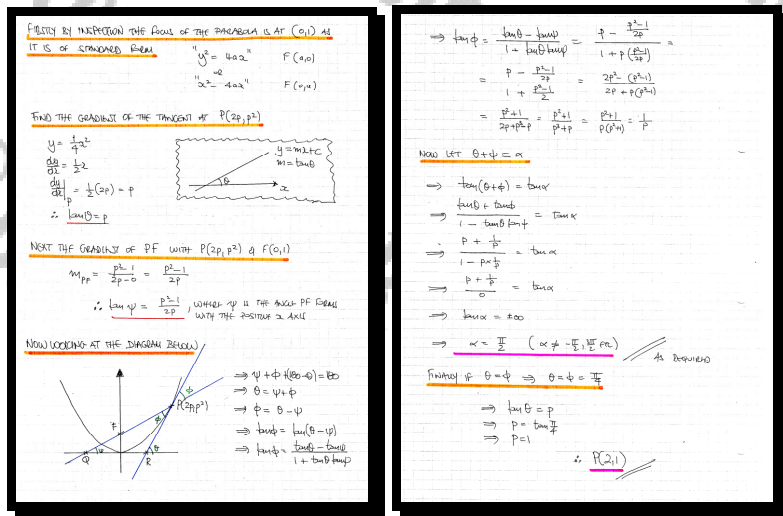 FIRSTLY BY INSPECTION THE FOCUS OF THE PARABOLA IS AT (0,1) AS
IT IS OF STANDARD FORM
"y² = 4ax" F(a,0)
or
"x² = 4ay" F(0,a)
FIND THE GRADIENT OF THE TANGENT AT P(2p,p²)
y = 1/4 x²
dy/dx = 1/2 x
dy/dx|P = 1/2 (2p) = p
∴ tanθ = p
y = mx+c
m = tanθ
θ
x
NEXT THE GRADIENT OF PF WITH P(2p,p²) & F(0,1)
m PF = p²-1 / 2p-0 = p²-1 / 2p
∴ tan ψ = p²-1 / 2p , WHERE ψ IS THE ANGLE PF FORMS
WITH THE POSITIVE x AXIS
NOW LOOKING AT THE DIAGRAM BELOW
P(2p,p²)
F
Q
R
ψ
θ
φ
φ
⇒ ψ + φ + (180-θ) = 180
⇒ θ = ψ + φ
⇒ φ = θ - ψ
⇒ tanφ = tan(θ-ψ)
⇒ tanφ = tanθ - tanψ / 1 + tanθ tanψ
⇒ tanφ = tanθ - tanψ / 1 + tanθ tanψ = p - p²-1/2p / 1 + p(p²-1/2p) =
= p - p²-1/2p / 1 + p²-1/2 = 2p² - (p²-1) / 2p + p(p²-1)
= p²+1 / 2p+p³-p = p²+1 / p³+p = p²+1 / p(p²+1) = 1/p
NOW LET θ+φ = α
⇒ tan(θ+φ) = tanα
⇒ tanθ + tanφ / 1 - tanθ tanφ = tanα
⇒ p + 1/p / 1 - p×1/p = tanα
⇒ p + 1/p / 0 = tanα
⇒ tanα = ±∞
⇒ α = π/2 (α ≠ -π/2, 3π/2 etc)
AS REQUIRED
FINALLY IF θ = φ ⇒ θ = φ = π/4
⇒ tanθ = p
⇒ p = tan π/4
⇒ p = 1
∴ P(2,1)